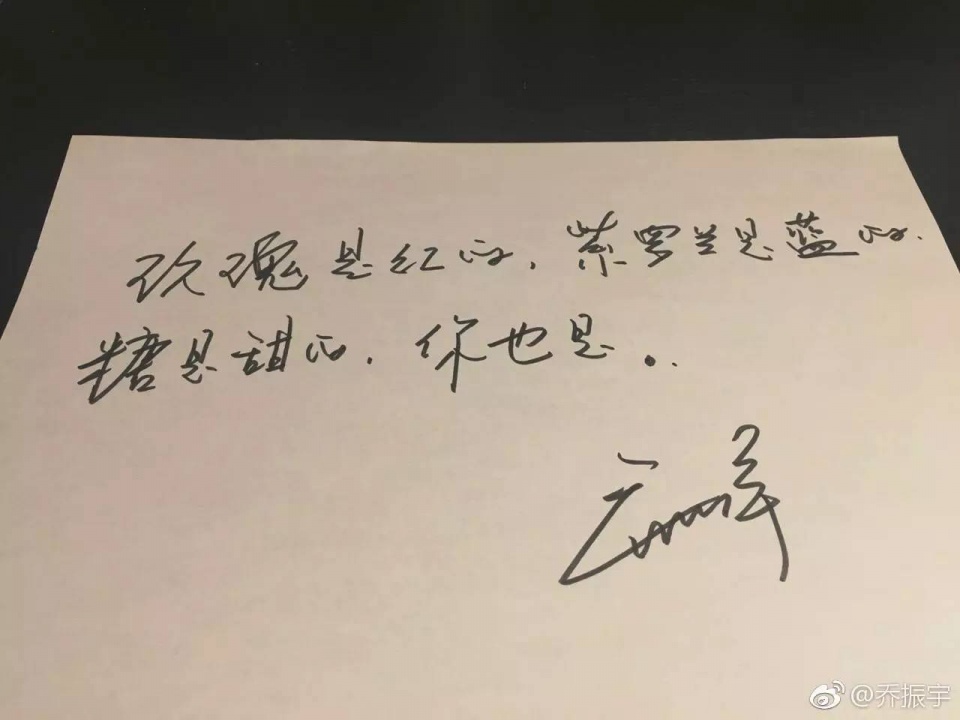 玫瑰是红的，紫罗兰是蓝的.
糖是甜的，你也是..
@乔振宇